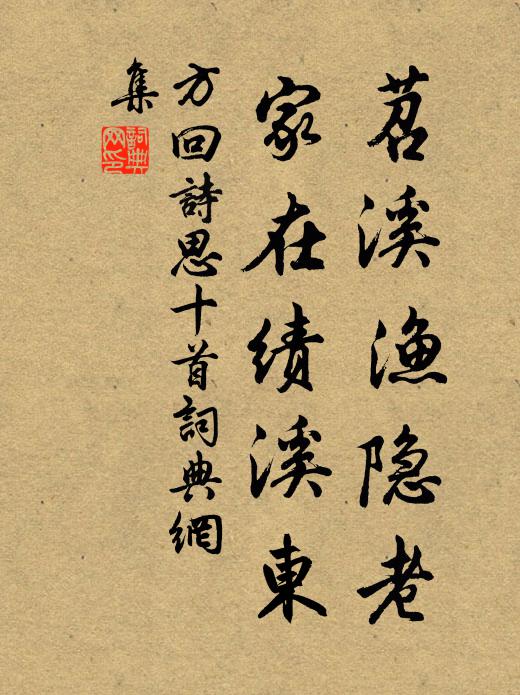 苕溪漁隐老
家在績溪東
方回詩思十首詞典網
集
詞典网印